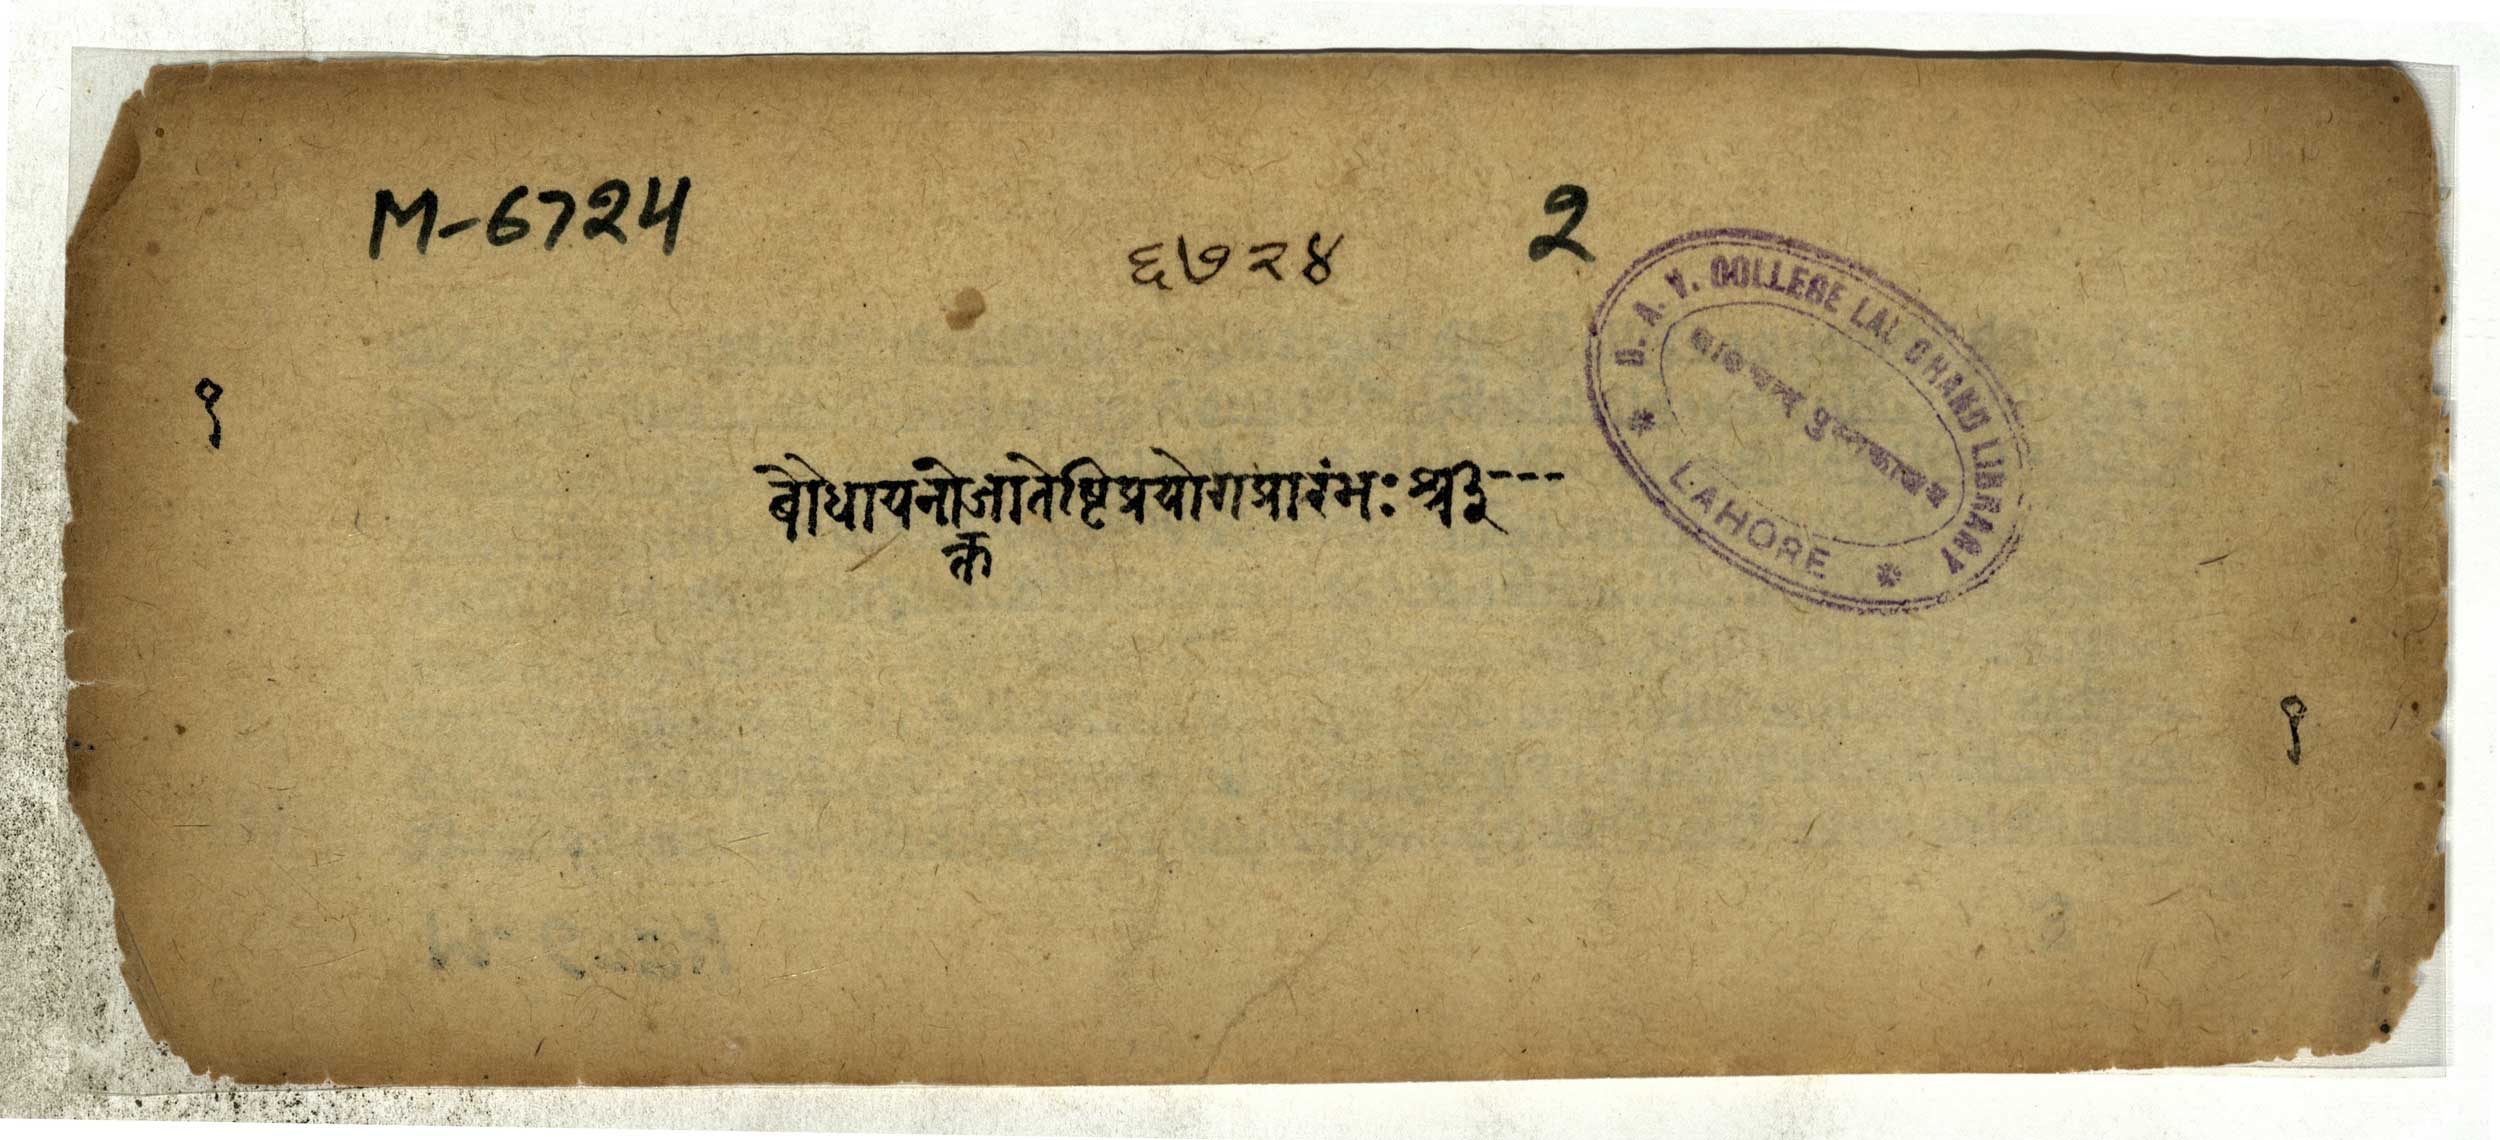 M-6724
६७२४
2
D. A. V. COLLEGE LAL CHAND LIBRARY
लालचन्द पुस्तकालय
* LAHORE *
१
बौधायनोजातेष्टिप्रयोगप्रारंभः
क्त
१